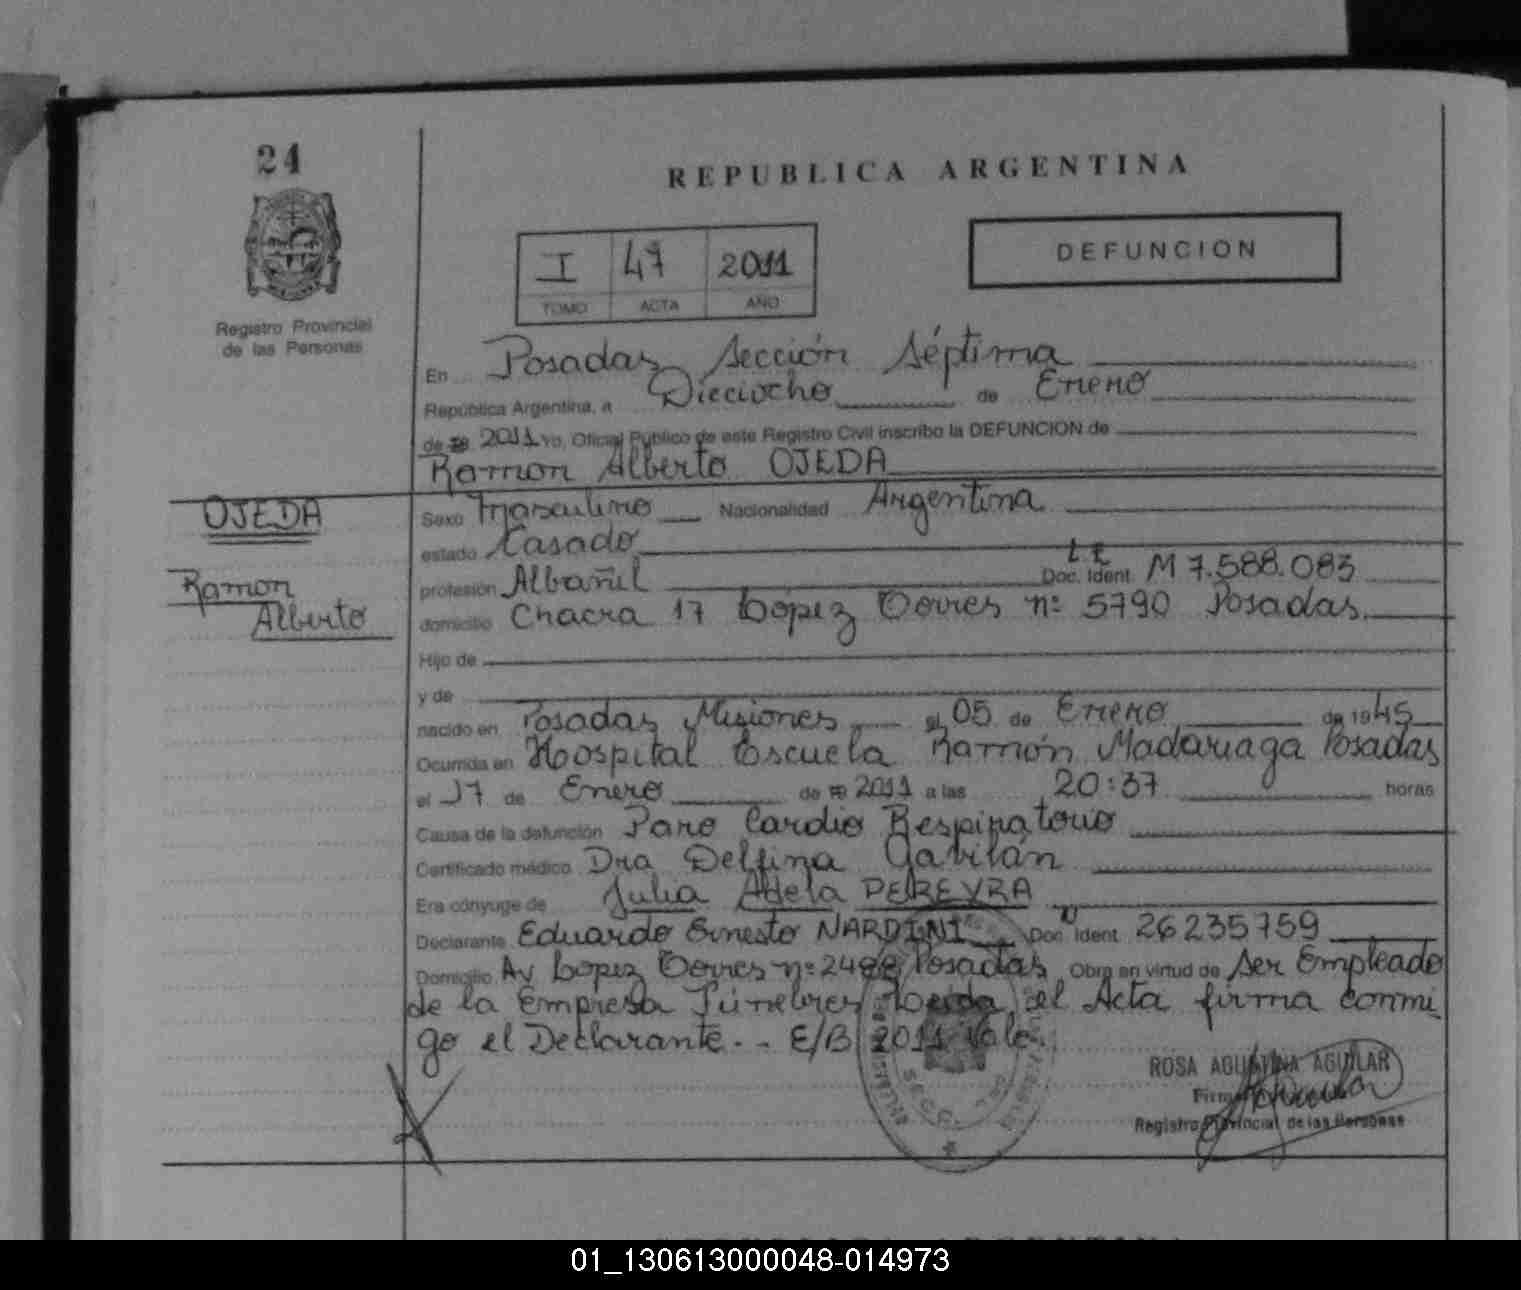 24
REPUBLICA ARGENTINA
I 47 2011
TOMO ACTA AÑO
DEFUNCION
Registro Provincial
de las Personas
En Posadas Sección Séptima
República Argentina, a Dieciocho de Enero
de 2011 Yo, Oficial Público de este Registro Civil inscribo la DEFUNCION de
Ramon Alberto OJEDA
OJEDA
Ramon
Alberto
Sexo Masculino Nacionalidad Argentina
estado Casado
profesión Albañil Doc. Ident. L.E M 7.588.083
domicilio Chacra 17 López Torres nº 5790 Posadas
Hijo de
y de
nacido en Posadas Misiones el 05 de Enero de 1945
Ocurrida en Hospital Escuela Ramón Madariaga Posadas
el 17 de Enero de 2011 a las 20:37 horas
Causa de la defunción Paro Cardio Respiratorio
Certificado médico Dra Delfina Gavilán
Era cónyuge de Julia Adela PEREYRA
Declarante Eduardo Ernesto NARDINI Doc. Ident. 26235759
Domicilio Av Lopez Torres nº 2488 Posadas Obra en virtud de Ser Empleado
de la Empresa Fúnebres Leida el Acta firma conmi
go el Declarante.- E/B 2011 Vale.
ROSA AGUSTINA AGUILAR
Registro Provincial de las Personas
SECC
01_130613000048-014973